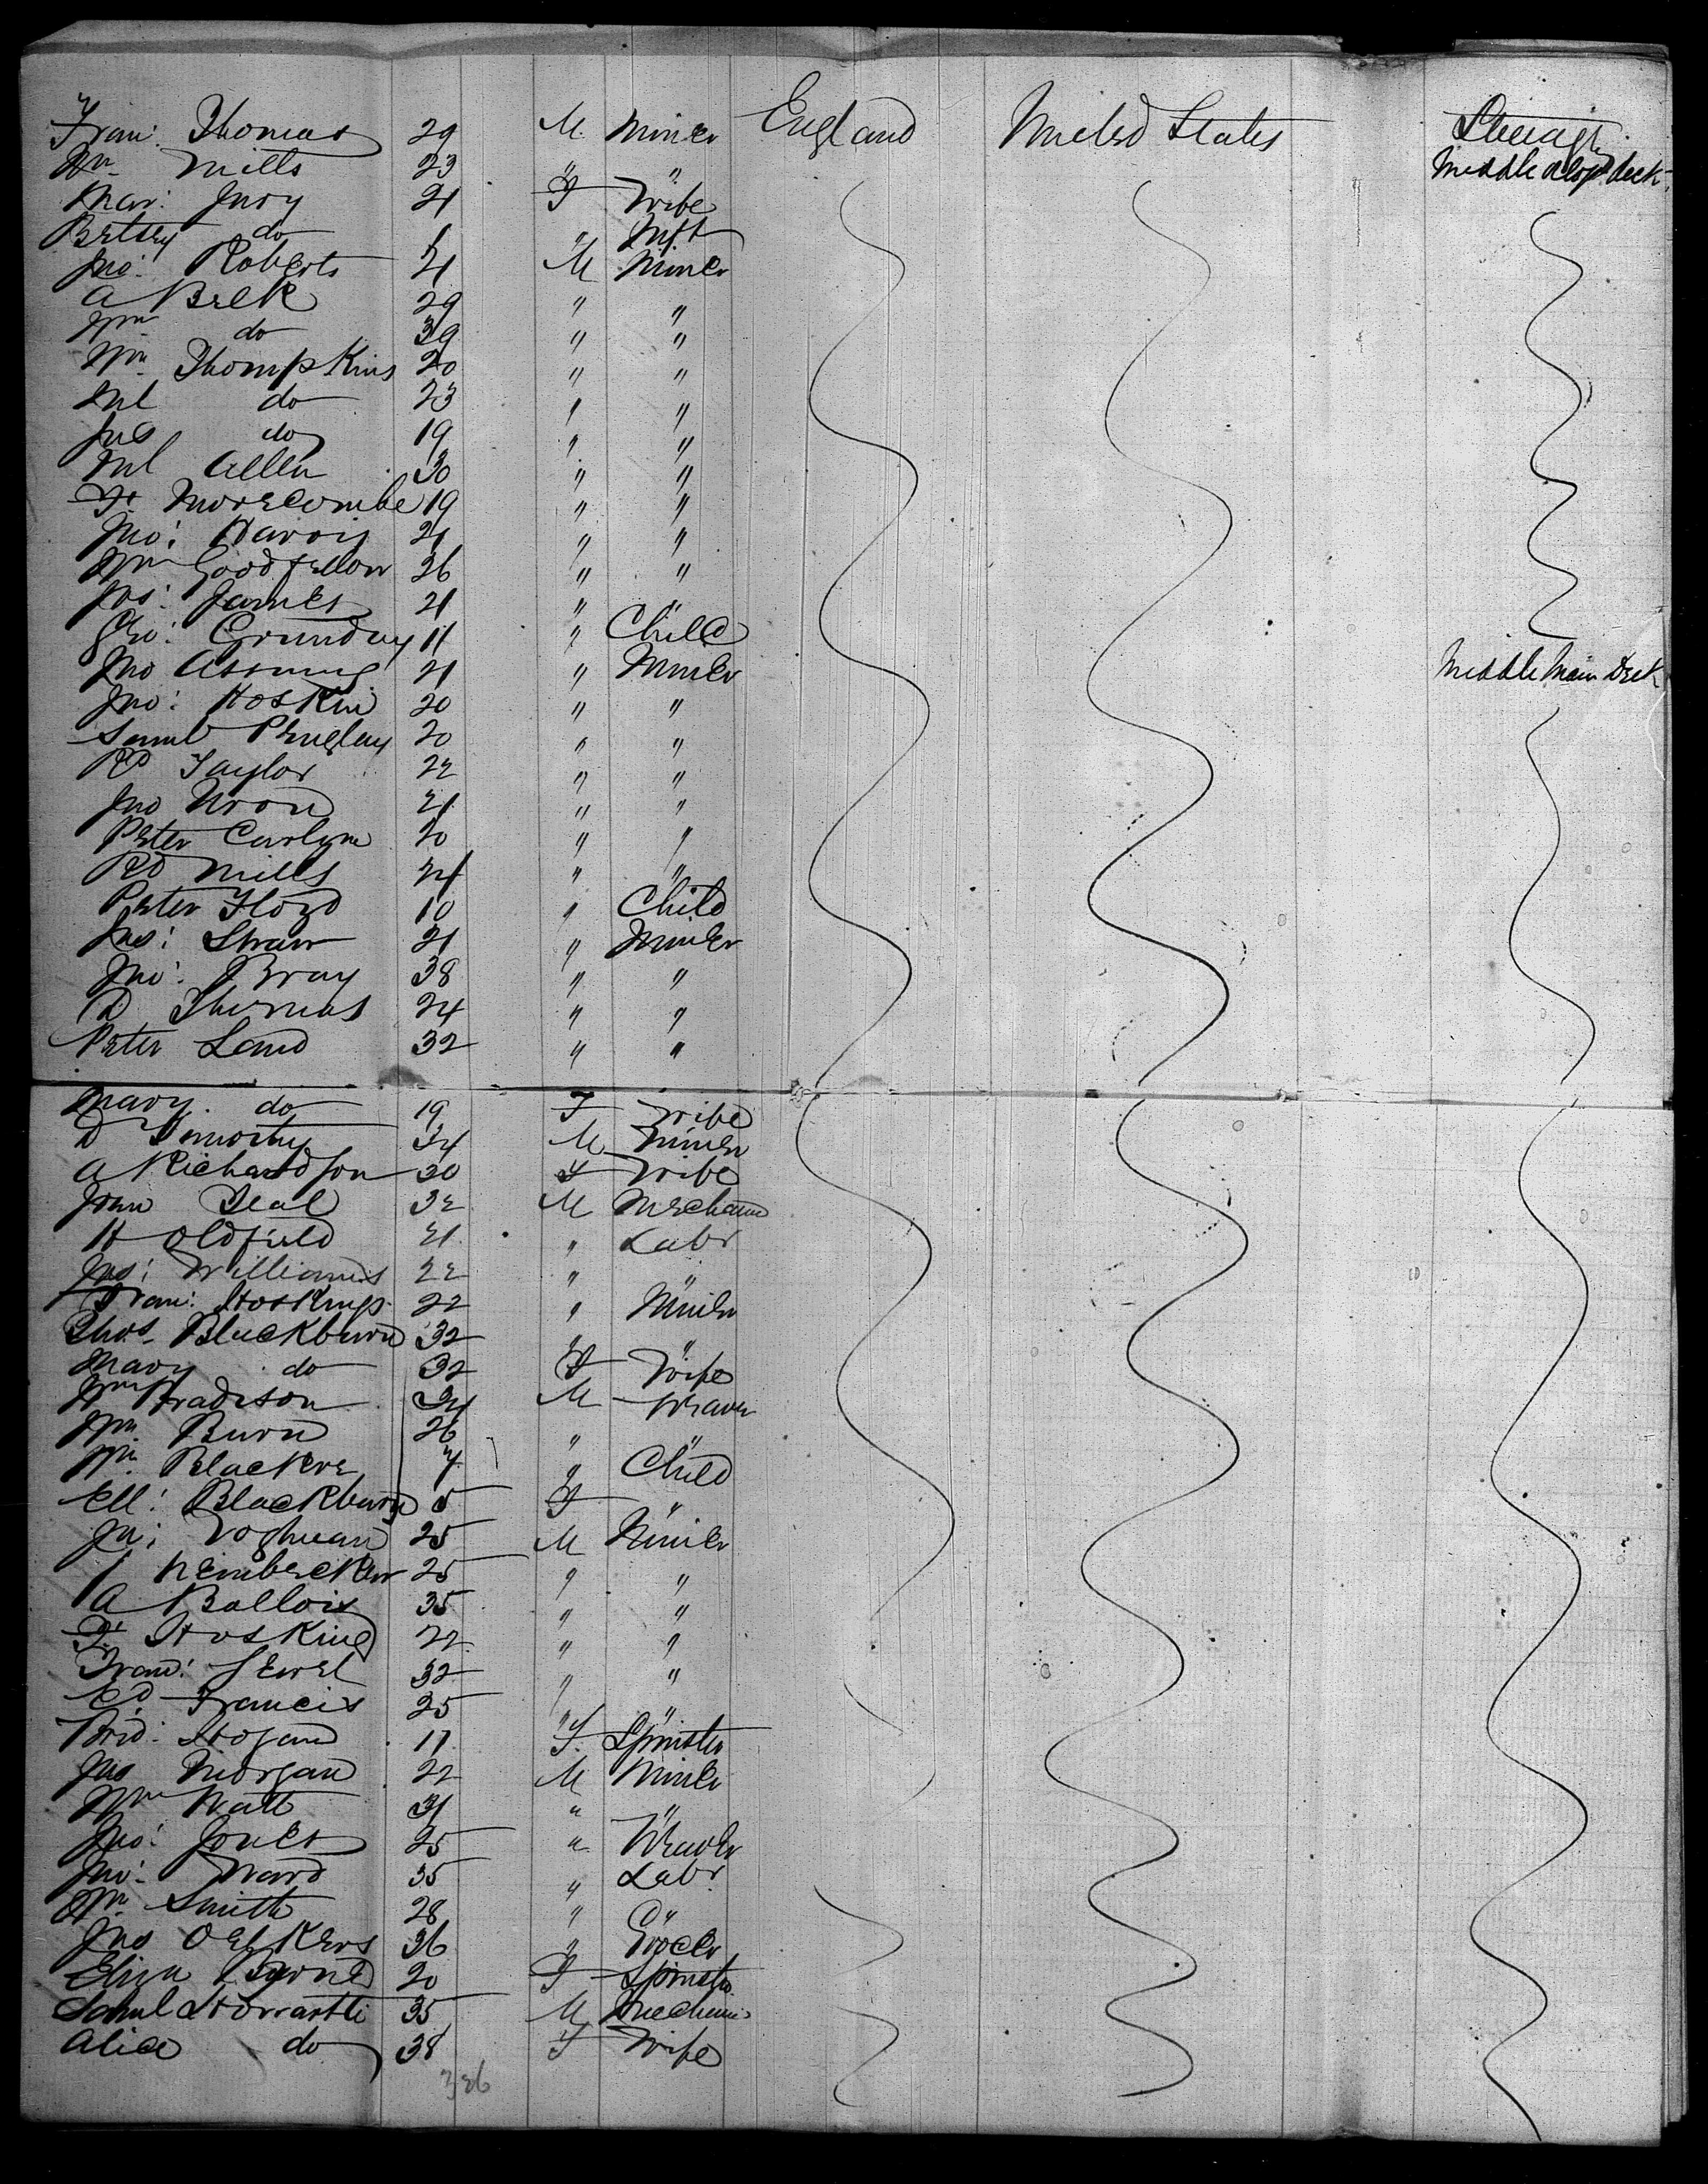 Fran: Thomas 29 M. Miner England United States Steerage
Wm Mills 23 " " Middle Alop deck
Mar: Jury 21 F Wife
Betsey do 1 " Inft
Jno: Roberts 21 M Miner
A Belk 29 " "
Wm do 39 " "
Wm Thompkins 20 " "
do 23 " "
Jas do 19 " "
Allen 30 " "
Morecombe 19 " "
Jno: Harris 21 " "
Wm Goodfellow 26 " "
Jos: James 21 " "
Geo: Grunday 11 " Child
Jno 21 " Miner Middle Main Deck
Jno: Hoskin 20 " "
Saml Penglay 20 " "
Rd Taylor 22 " "
Jno Wron 21 " "
Peter Carlyne 20 " "
Rd Mills 24 " "
Peter Floyd 10 " Child
Jas: Shaw 21 " Miner
Jno: Bray 38 " "
R Thomas 24 " "
Peter Land 32 " "
Mary do 19 F Wife
D Timothy 34 M Miner
A Richardson 30 F Wife
John Teal 32 M Mechanic
H Oldfield 21 " Labr
Jas: Williams 22 " "
Fran: Hoskings 22 " Miner
Thos Blackburn 32 " "
Mary do 32 F Wife
Wm Bradison 34 M Weaver
Wm Burn 26 " "
Wm Blackre 7 " Child
Ell: Blackburn 5 F "
25 M Miner
J Nembecker 25 " "
A Ballois 35 " "
Hosking 22 " "
Fran: Jewel 32 " "
Ed Francis 25 " "
Brid: Hogan 17 F. Spinster
Jas Morgan 22 M Miner
Wm Watt 31 " "
Jno: Jones 25 " Weaver
Jno: Ward 35 " Labr
Wm Smith 28 " "
Jno Oelkers 36 " Grocer
Eliza Byrne 20 F Spinster
Saml Horrastle 35 M Mechanic
Alice do 38 F Wife
326